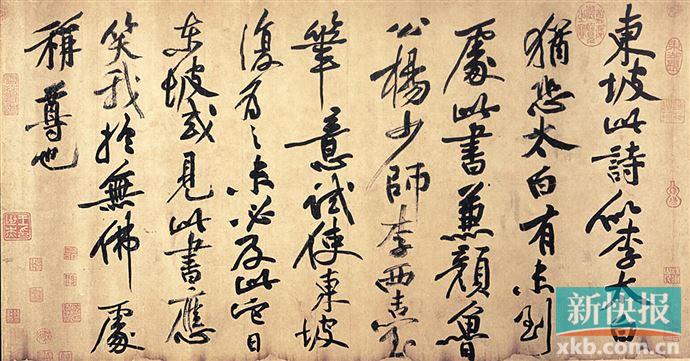 東坡此詩似李太白
猶恐太白有未到
處此書兼顏魯
公楊少師李西臺
筆意試使東坡
復為之未必及此它日
東坡或見此書應
笑我於無佛處
稱尊也
新快报
xkb.com.cn